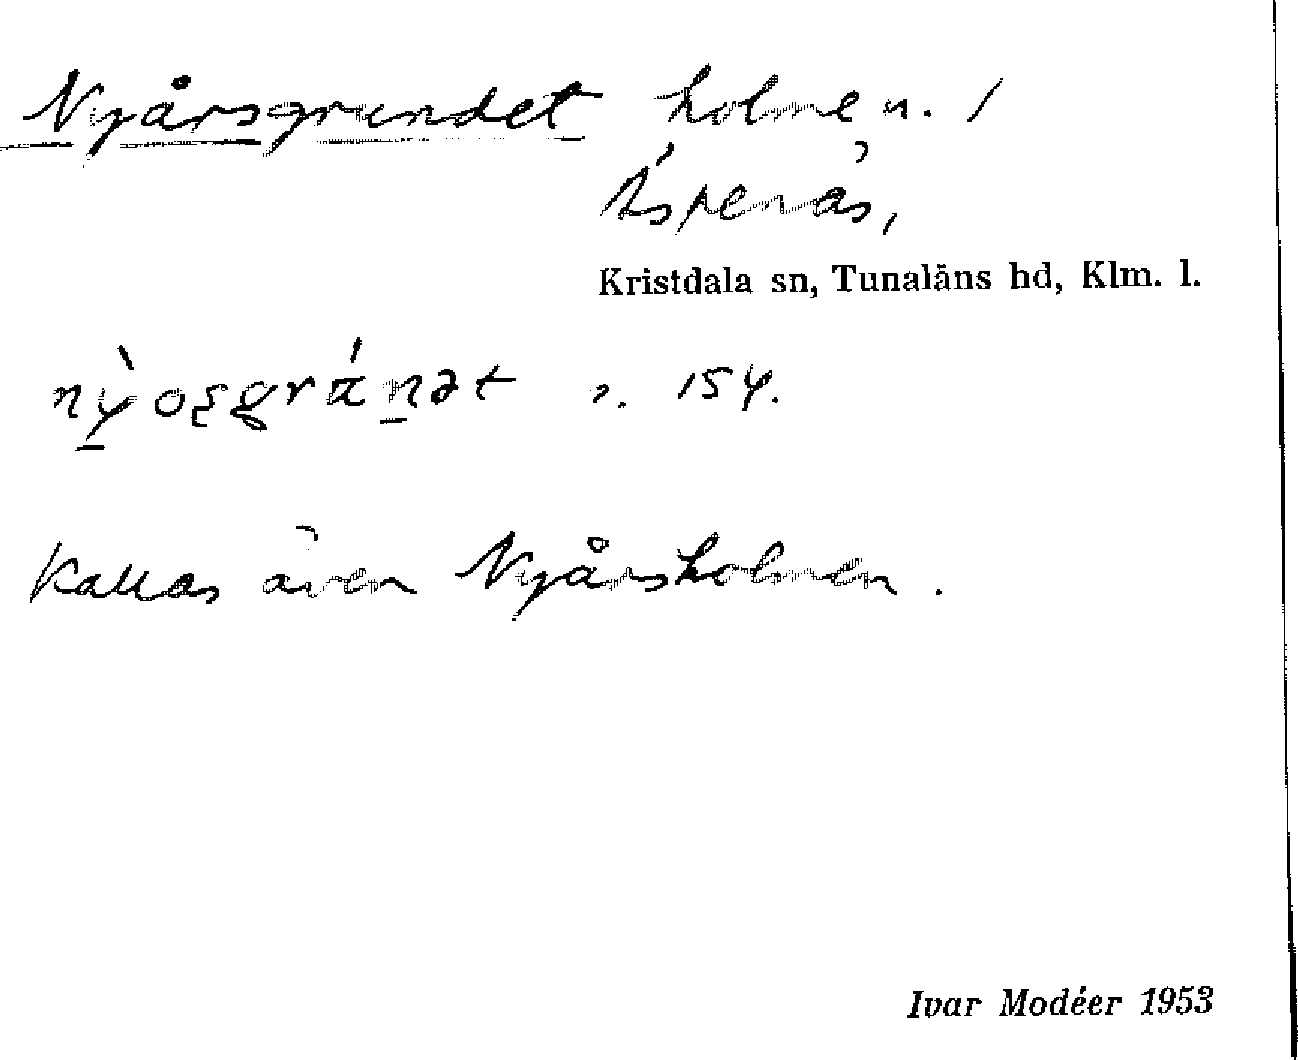 Nyårsgrundet holme n. /
Äsperås,
Kristdala sn, Tunaläns hd, Klm. l.
154.
Kallas även Nyårsholmen.
Ivar Modéer 1953